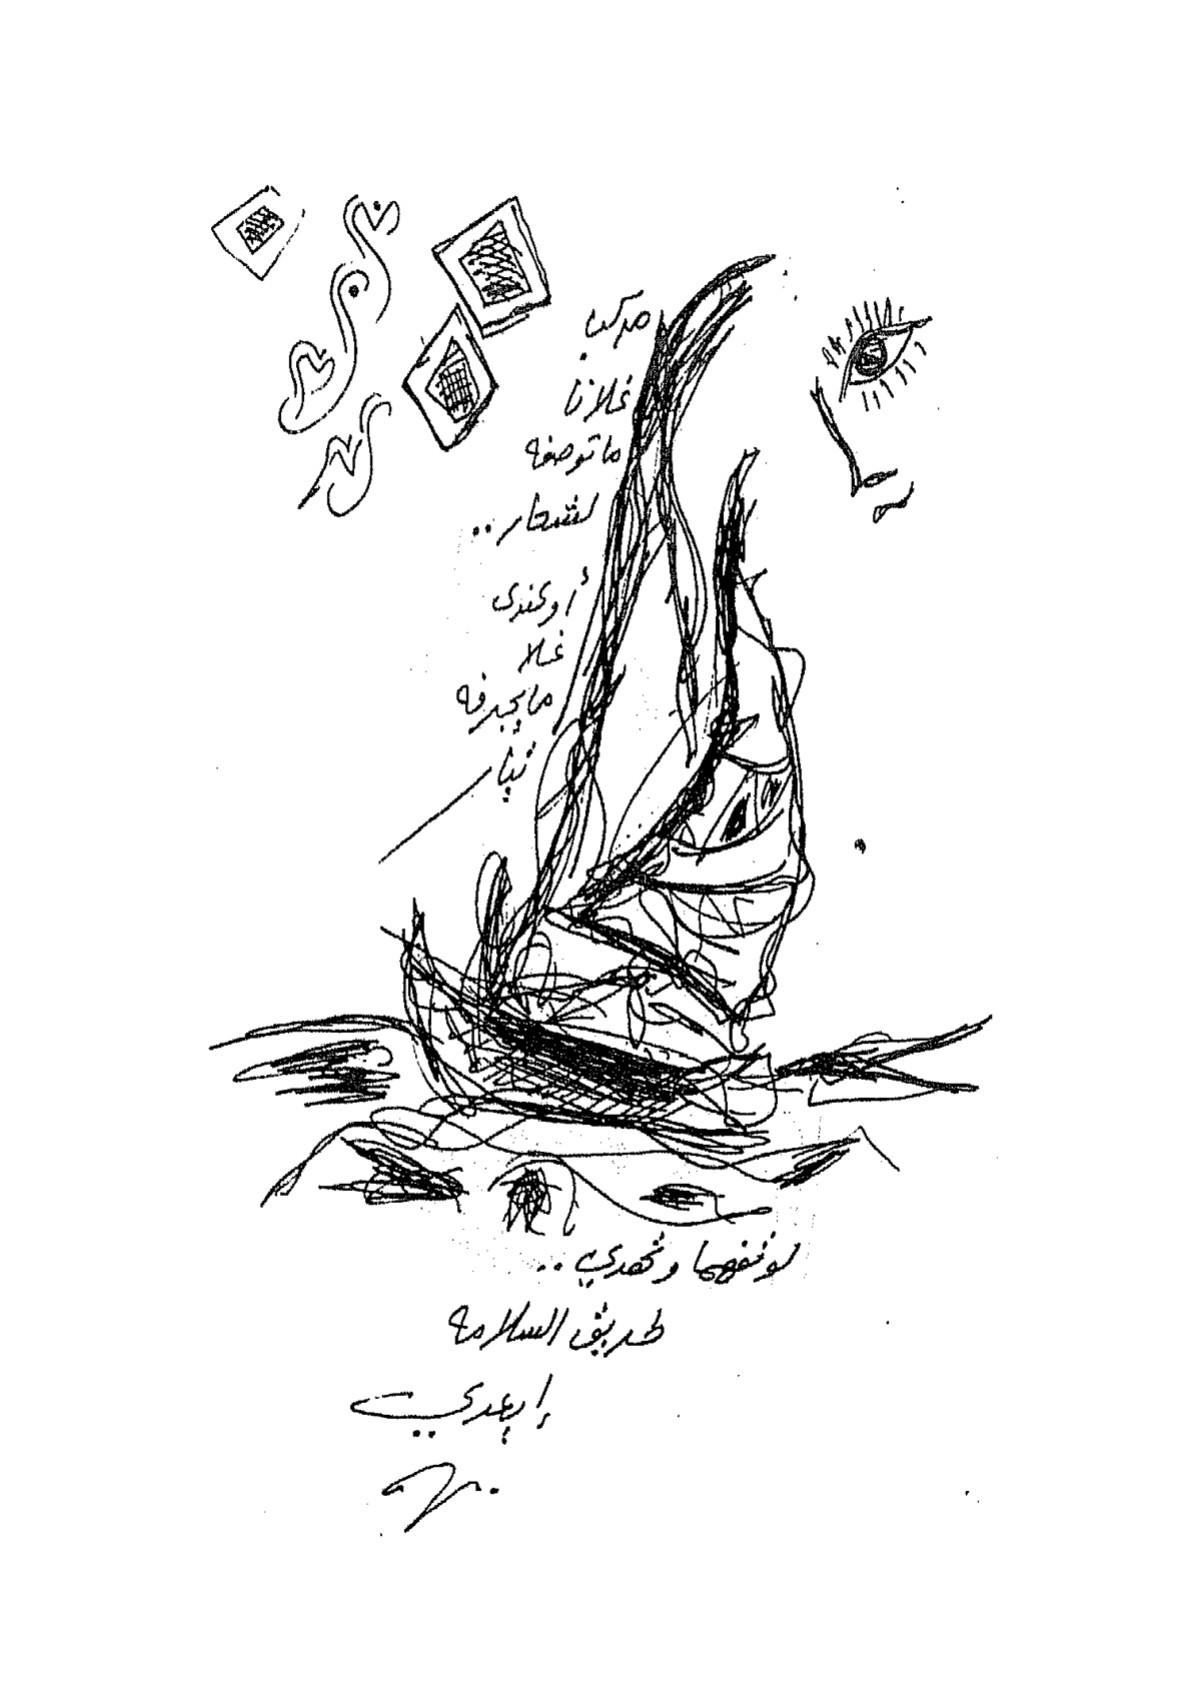 مركب
غلانا
ماتوصفه
لشعار ..
أوعندي
غلا
مايجرفه
تيار
لو تفهما وتهدي ..
طريق السلامه
إبعدي